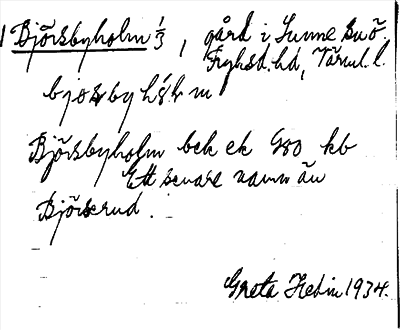 1 Björsbyholm 1/3, gård i Sunne sn Ö.
Fryksd. hd, Värml. l.
Björsbyholm bek ek 980 kb
Ett senare namn än
Björserud.
Greta Hedin 1934.